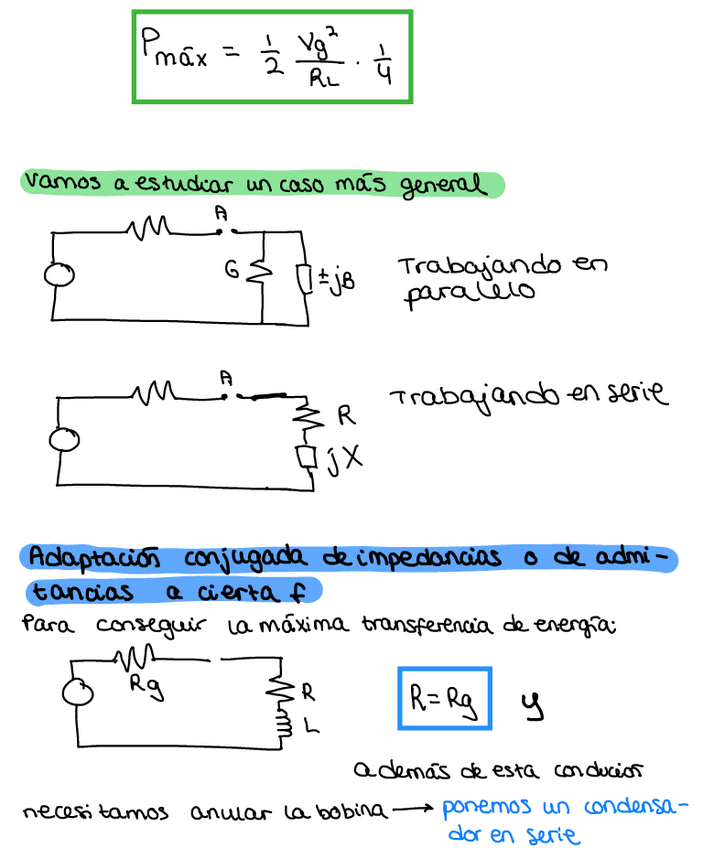 Pmáx = 1/2 Vg²/RL · 1/4
Vamos a estudiar un caso más general
A
G
±jB
Trabajando en
paralelo
A
R
jX
Trabajando en serie
Adaptación conjugada de impedancias o de admi-
tancias a cierta f
Para conseguir la máxima transferencia de energía:
Rg
R
L
R=Rg y
además de esta condición
necesitamos anular la bobina → ponemos un condensa-
dor en serie